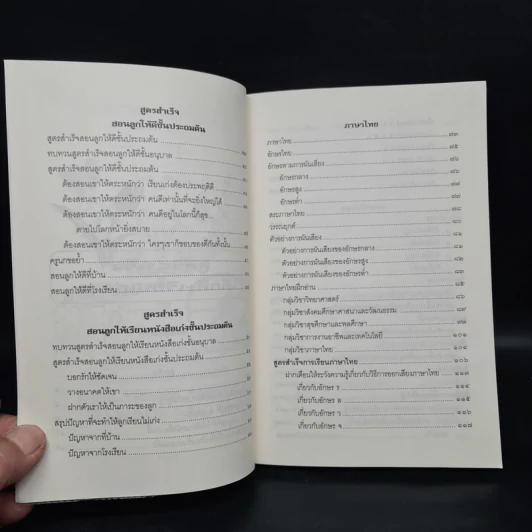 สูตรสำเร็จ
สอนลูกให้ดีชั้นประถมต้น
สูตรสำเร็จสอนลูกให้ดีชั้นประถมต้น
ทบทวนสูตรสำเร็จสอนลูกให้ดีชั้นอนุบาล
สูตรสำเร็จสอนลูกให้ดีชั้นประถมต้น
ต้องสอนเขาให้ตระหนักว่า เรียนเก่งต้องประพฤติดี
ต้องสอนเขาให้ตระหนักว่า คนดีเท่านั้นที่จะยิ่งใหญ่ได้
ต้องสอนเขาให้ตระหนักว่า คนดีอยู่ในโลกนี้ก็สุข
ตายไปโลกหน้ายิ่งสบาย
ต้องสอนเขาให้ตระหนักว่า ใครๆเขาก็ชอบของดีกันทั้งนั้น
ครูนกขอย้ำ
สอนลูกให้ดีที่บ้าน
สอนลูกให้ดีที่โรงเรียน
สูตรสำเร็จ
สอนลูกให้เรียนหนังสือเก่งชั้นประถมต้น
ทบทวนสูตรสำเร็จสอนลูกให้เรียนหนังสือเก่งชั้นอนุบาล
สูตรสำเร็จสอนลูกให้เรียนหนังสือเก่งชั้นประถมต้น
บอกรักให้ชัดเจน
วางอนาคตให้เขา
ฝากตัวเราให้เป็นภาระของลูก
สรุปปัญหาที่จะทำให้ลูกเรียนไม่เก่ง
ปัญหาจากที่บ้าน
ปัญหาจากโรงเรียน
ภาษาไทย
ภาษาไทย ๗๓
อักษรไทย ๗๕
อักษรตามการผันเสียง ๗๖
อักษรกลาง ๗๖
อักษรสูง ๗๗
อักษรต่ำ ๗๗
สระภาษาไทย ๗๘
วรรณยุกต์
ตัวอย่างการผันเสียง ๘๑
ตัวอย่างการผันเสียงของอักษรกลาง
ตัวอย่างการผันเสียงของอักษรสูง
ตัวอย่างการผันเสียงของอักษรต่ำ
ภาษาไทยฝึกอ่าน
กลุ่มวิชาวิทยาศาสตร์ ๘๖
กลุ่มวิชาสังคมศึกษาศาสนาและวัฒนธรรม
กลุ่มวิชาสุขศึกษาและพลศึกษา
กลุ่มวิชาการงานอาชีพและเทคโนโลยี ๑๐๑
กลุ่มวิชาภาษาไทย
สูตรสำเร็จการเรียนภาษาไทย ๑๐๖
ฝากเตือนให้ระวังความรู้เกี่ยวกับวิธีการออกเสียงภาษาไทย ๑๑๓
เกี่ยวกับอักษร ร ๑๑๔
เกี่ยวกับอักษร ล ๑๑๕
เกี่ยวกับอักษร ว ๑๑๖
เกี่ยวกับอักษร จ ๑๑๗